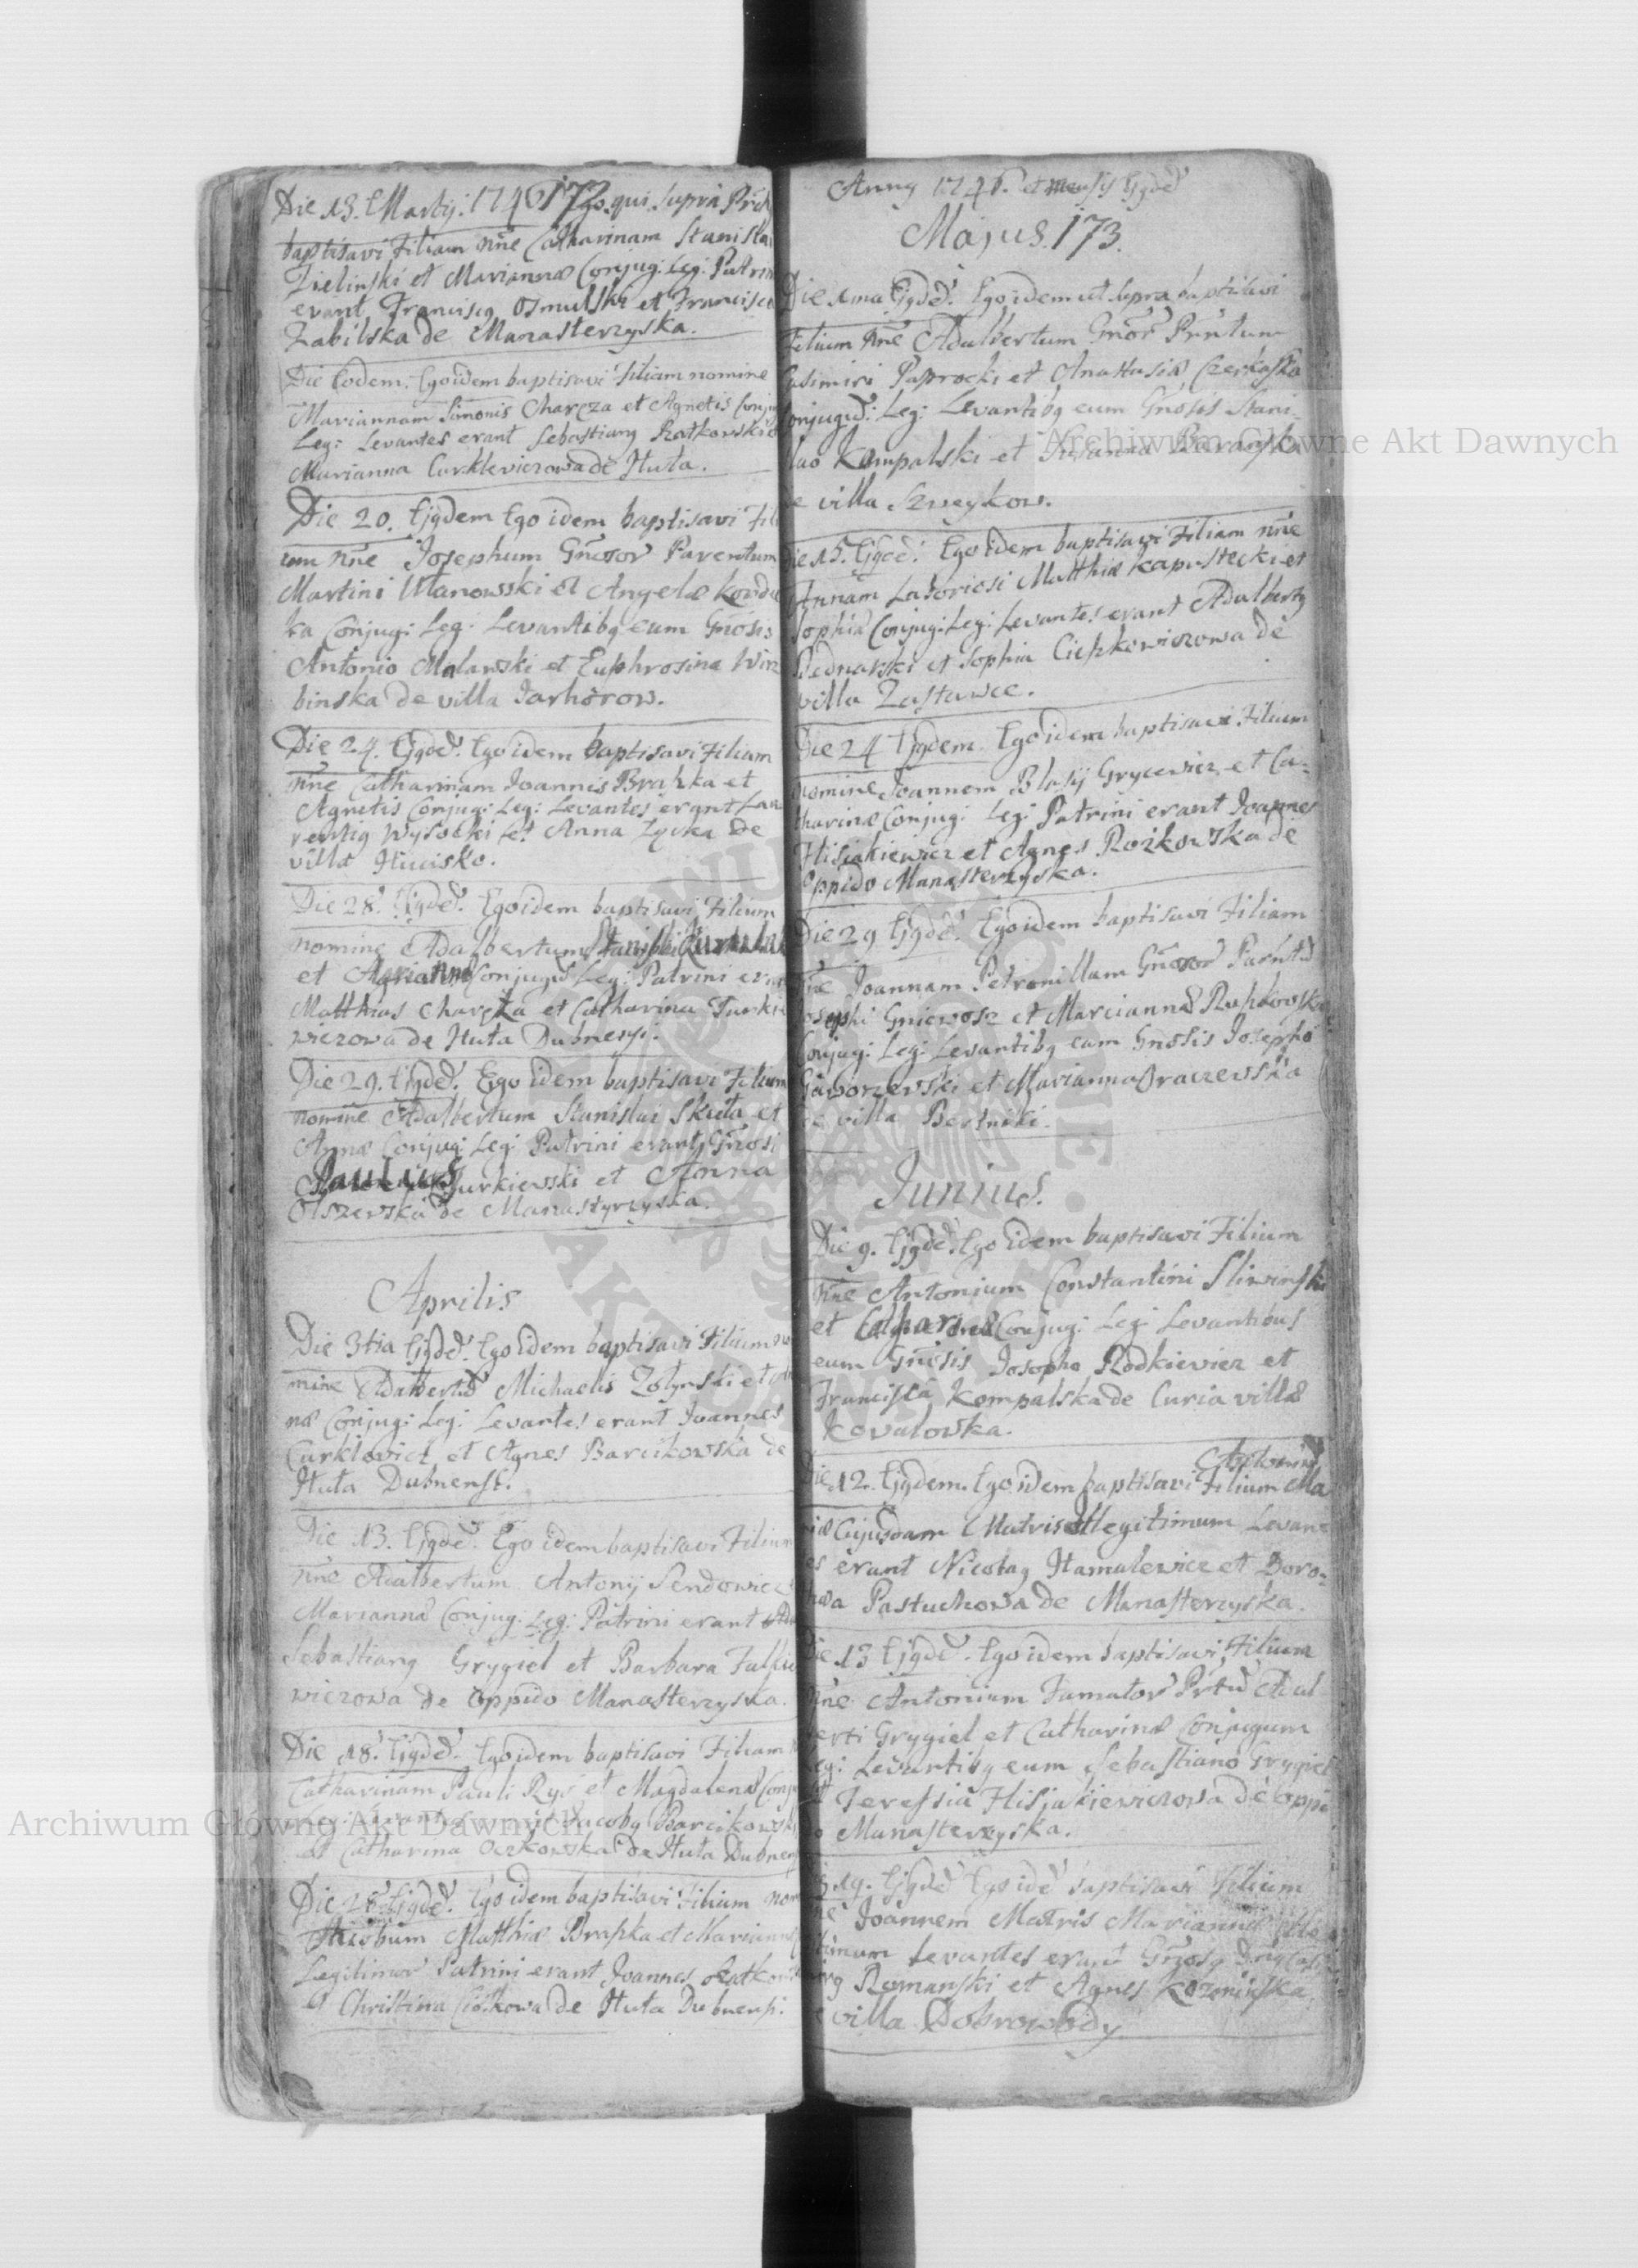 Die 13. Martij: 1746 173 Ego qui supra
baptisavi Filiam nne Catharinam Stanislai
Zielinski et Mariannæ Conjug: Leg: Patrini
erant Franciscg Osmulski et Francisca
Zabilska de Manasterzyska.
Die Eodem. Ego idem baptisavi Filiam nomine
Mariannam Simonis Charcza et Agnetis Conjug
Leg: Levantes erant Sebastiang Ratkowski
Marianna Curklevicrowa de Huta.
Die 20. Ejgdem Ego idem baptisavi Fili
um nne Josephum Gnosor Parentum
Martini Ulanowski et Angelæ
ka Conjug: Leg: Levantibg eum Gnosis
Antonio Malawski et Euphrosina
binska de villa Jarhorow.
Die 24. Ejgdē. Ego idem baptisavi Filiam
nne Catharinam Joannis Brapka et
Agnetis Conjug: Leg: Levantes erant Lau
rentig Wysocki et Anna Zycka de
villa Hucisko.
Die 28. Ejgdē. Ego idem baptisavi Filium
nomine Adalbertum
et Conjugū Leg: Patrini erant
Matthias Charczka et Catharina Turkie
wiczowa de Huta Dubnensi.
Die 29. Ejgdē. Ego idem baptisavi Filium
nomine Adalbertum Stanislai Skuta et
Annæ Conjug: Leg: Patrini erant Gnosi
Paulus Jurkiewski et Anna
Olszewska de Manastyrzyska.
Aprilis
Die 3tia Ejgdē. Ego idem baptisavi Filium no
mine Adalbertū Michaelis Zotynski et An
næ Conjug: Leg: Levantes erant Joannes
Curklovicz et Agnes Barcikowska de
Huta Dubnensi.
Die 13. Ejgdē. Ego idem baptisavi Filium
nne Adalbertum Antonij Sendowicz
Mariannæ Conjug: Leg: Patrini erant
Sebastiang Grygiel et Barbara
wiczowa de Oppido Manasterzyska.
Die 18. Ejgdē. Ego idem baptisavi Filiam
Catharinam Pauli Rys et Magdalenæ Conjug
Leg: Levantes erant Jacobg Barcikowski
et Catharina Oczkowska de Huta Dubnensi
Die 28 Ejgdē. Ego idem baptisavi Filium nom
Jacobum Matthiæ Brapka et Mariannæ
Legitimor Patrini erant Joannes
et Christina Ciotkowa de Huta Dubnensi.
Anno 1746. et mensis Ejgdē
Majus. 173.
Die 1ma Ejgdē. Ego idem ut supra baptisavi
Filium nne Adalbertum Gnor Prntum
Casimiri Paprocki et Anastasiæ Czerkaska
Conjugū: Leg: Levantibg eum Gnosis Stani-
lao Kompalski et Susanna Baranska
e villa Szweykow.
Die 15. Ejgdē. Ego idem baptisavi Filiam nne
Annam Laboriosi Matthiæ Kapustecki et
Sophiæ Conjug: Leg: Levantes erant Adalbertg
Bednarski et Sophia Ciepkowiczowa de
villa Zastawce.
Die 24 Ejgdem. Ego idem baptisavi Filium
nomine Joannem Blasij Grycewicz et Ca-
tharinæ Conjug: Leg: Patrini erant Joannes
Hisiakiewicz et Agnes Rozkowska de
Oppido Manasterzyska.
Die 29 Ejgdē. Ego idem baptisavi Filiam
nne Joannam Petronillam Gnosor Parntū
Josephi Gniewosz et Marciannæ
Conjug: Leg: Levantibg eam Gnosis Josepho
Gaworzewski et Marianna
de villa Bertniki.
Junius.
Die 9. Ejgdē. Ego idem baptisavi Filium
nne Antonium Constantini Sliwinski
et Catharinæ Conjug: Leg: Levantibus
eum Gnosis Josepho Rodkievicz et
Francisca Kompalska de Curia villæ
Kovalowka.
Antonium
Die 12. Ejgdem. Ego idem baptisavi Filium Ma
riæ Cujusdam Matris Illegitimum Levan
es erant Nicolag Hamalewicz et Doro-
thæa Pastuchowa de Manasterzyska.
Die 13 Ejgdē. Ego idem baptisavi Filium
nne Antonium Famator Prtū Adal
berti Grygiel et Catharinæ Conjugum
Leg: Levantibg eum Sebastiano Grygiel
et Teressia Hisiakiewiczowa de Oppi
do Manasterzyska.
19. Ejgdē Ego idē baptisavi Filium
nne Joannem Matris Mariannæ
timum Levantes erant Gnosg
Romanski et Agnes
villa Dobrowody
Archiwum Główne Akt Dawnych
Archiwum Główne Akt Dawnych